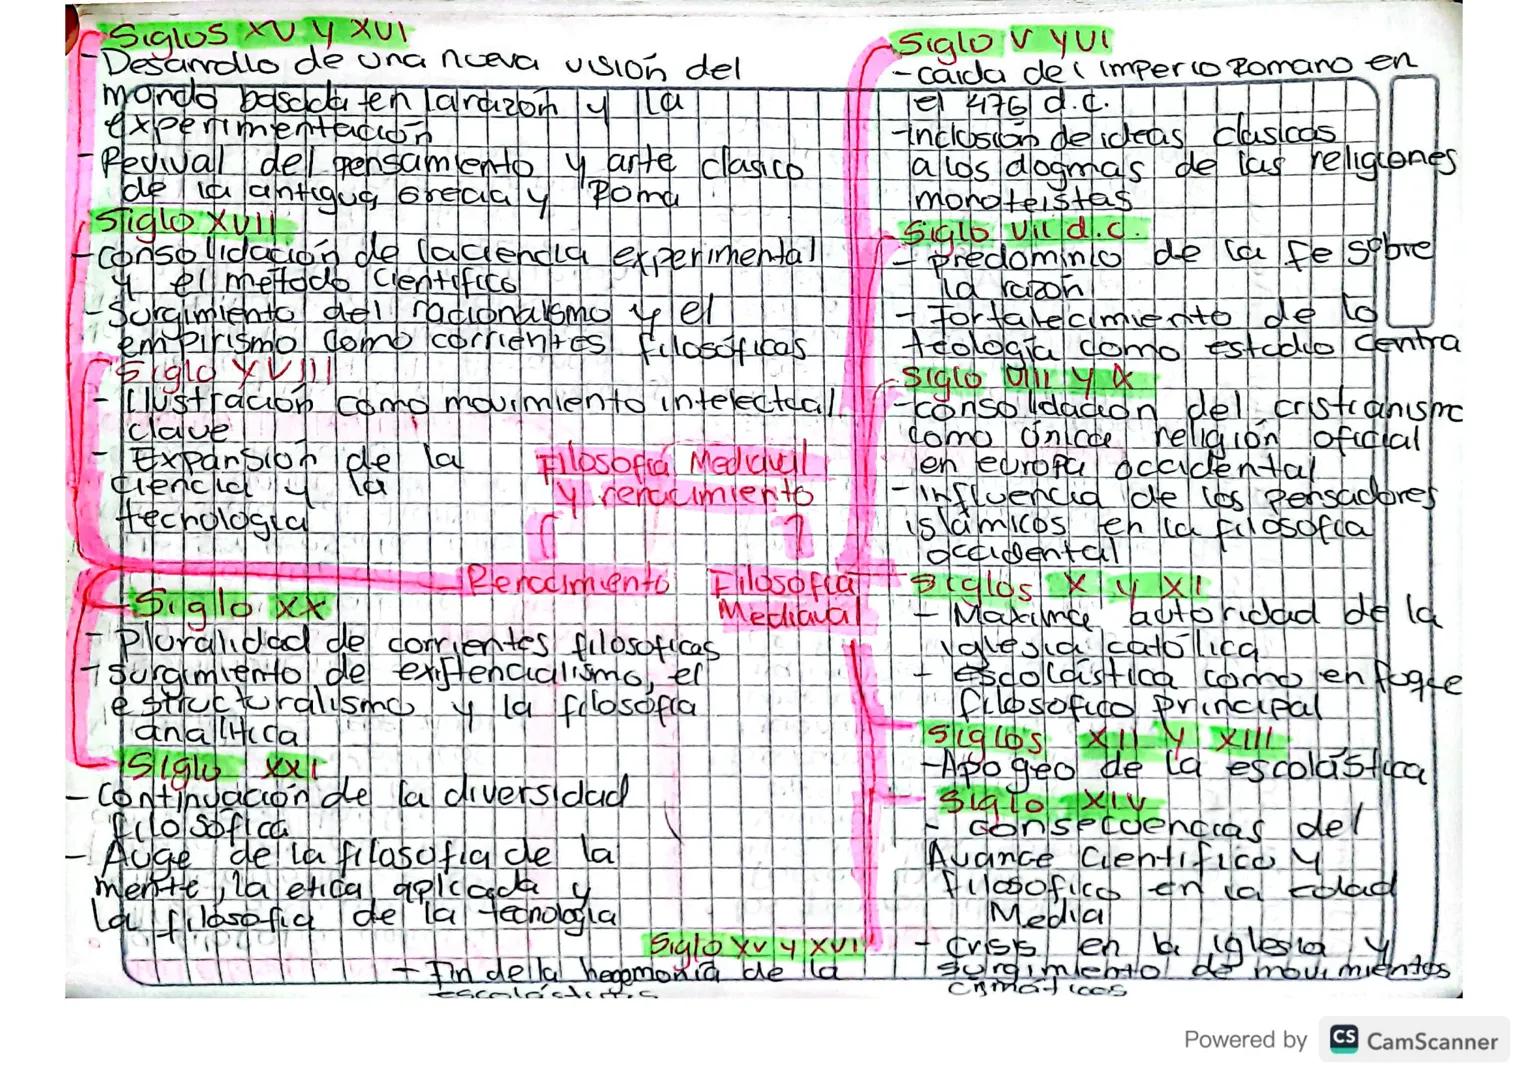 Siglos XV y XVI
- Desarrollo de una nueva visión del
mondo basada en la razón y la
experimentación
- Revival del pensamiento y arte clasico
de la antigua Grecia y Roma
Siglo XVII
- consolidación de la ciencia experimental
y el metodo cientifico
- Surgimiento del racionalismo y el
empirismo como corrientes filosóficas
Siglo XVIII
- Ilustración como movimiento intelectual
clave
- Expansión de la
ciencia y la
tecnologia
Filosofia Medieval
y renacimiento
Renacimiento
Filosofia
Medieval
Siglo XX
- Pluralidad de corrientes filosoficas
- surgimiento de existencialismo, el
estructuralismo y la filosofia
analitica
Siglo XXI
- Continuación de la diversidad
filosofica
- Auge de la filosofia de la
mente, la etica aplicada y
la filosofia de la tecnologia
Siglo V y VI
- caida del imperio Romano en
el 476 d.C.
- inclusión de ideas clasicas
a los dogmas de las religiones
monoteistas
Siglo VII d.C.
- predominio de la fe sobre
la razón
- Fortalecimiento de lo
teología como estudio centra
Siglo VIII y IX
- consolidación del cristianismo
como única religión oficial
en europa occidental
- influencia de los pensadores
islámicos en la filosofia
occidental
Siglos X y XI
- Maxima autoridad de la
iglesia católica
- escolástica como enfoque
filosofico principal
Siglos XII y XIII
- Apogeo de la escolástica
Siglo XIV
- consecuencias del
Avance Cientifico y
filosofico en la edad
Media
- crisis en la iglesia y
surgimiento de movimientos
cismáticos
Siglo XV y XVI
- Fin de la hegemonia de la
escolástica
Powered by CS CamScanner